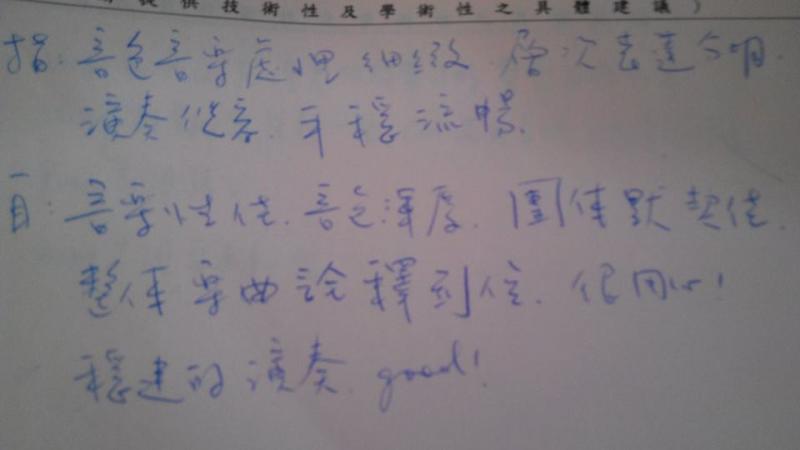 提供技術性及學術性之具體建議）
指：音色音樂處理細緻．層次表達分明．
演奏從容．平穩流暢．
自：音樂性佳．音色渾厚．團体默契佳．
整体樂曲詮釋到位．很用心！
穩建的演奏．good!